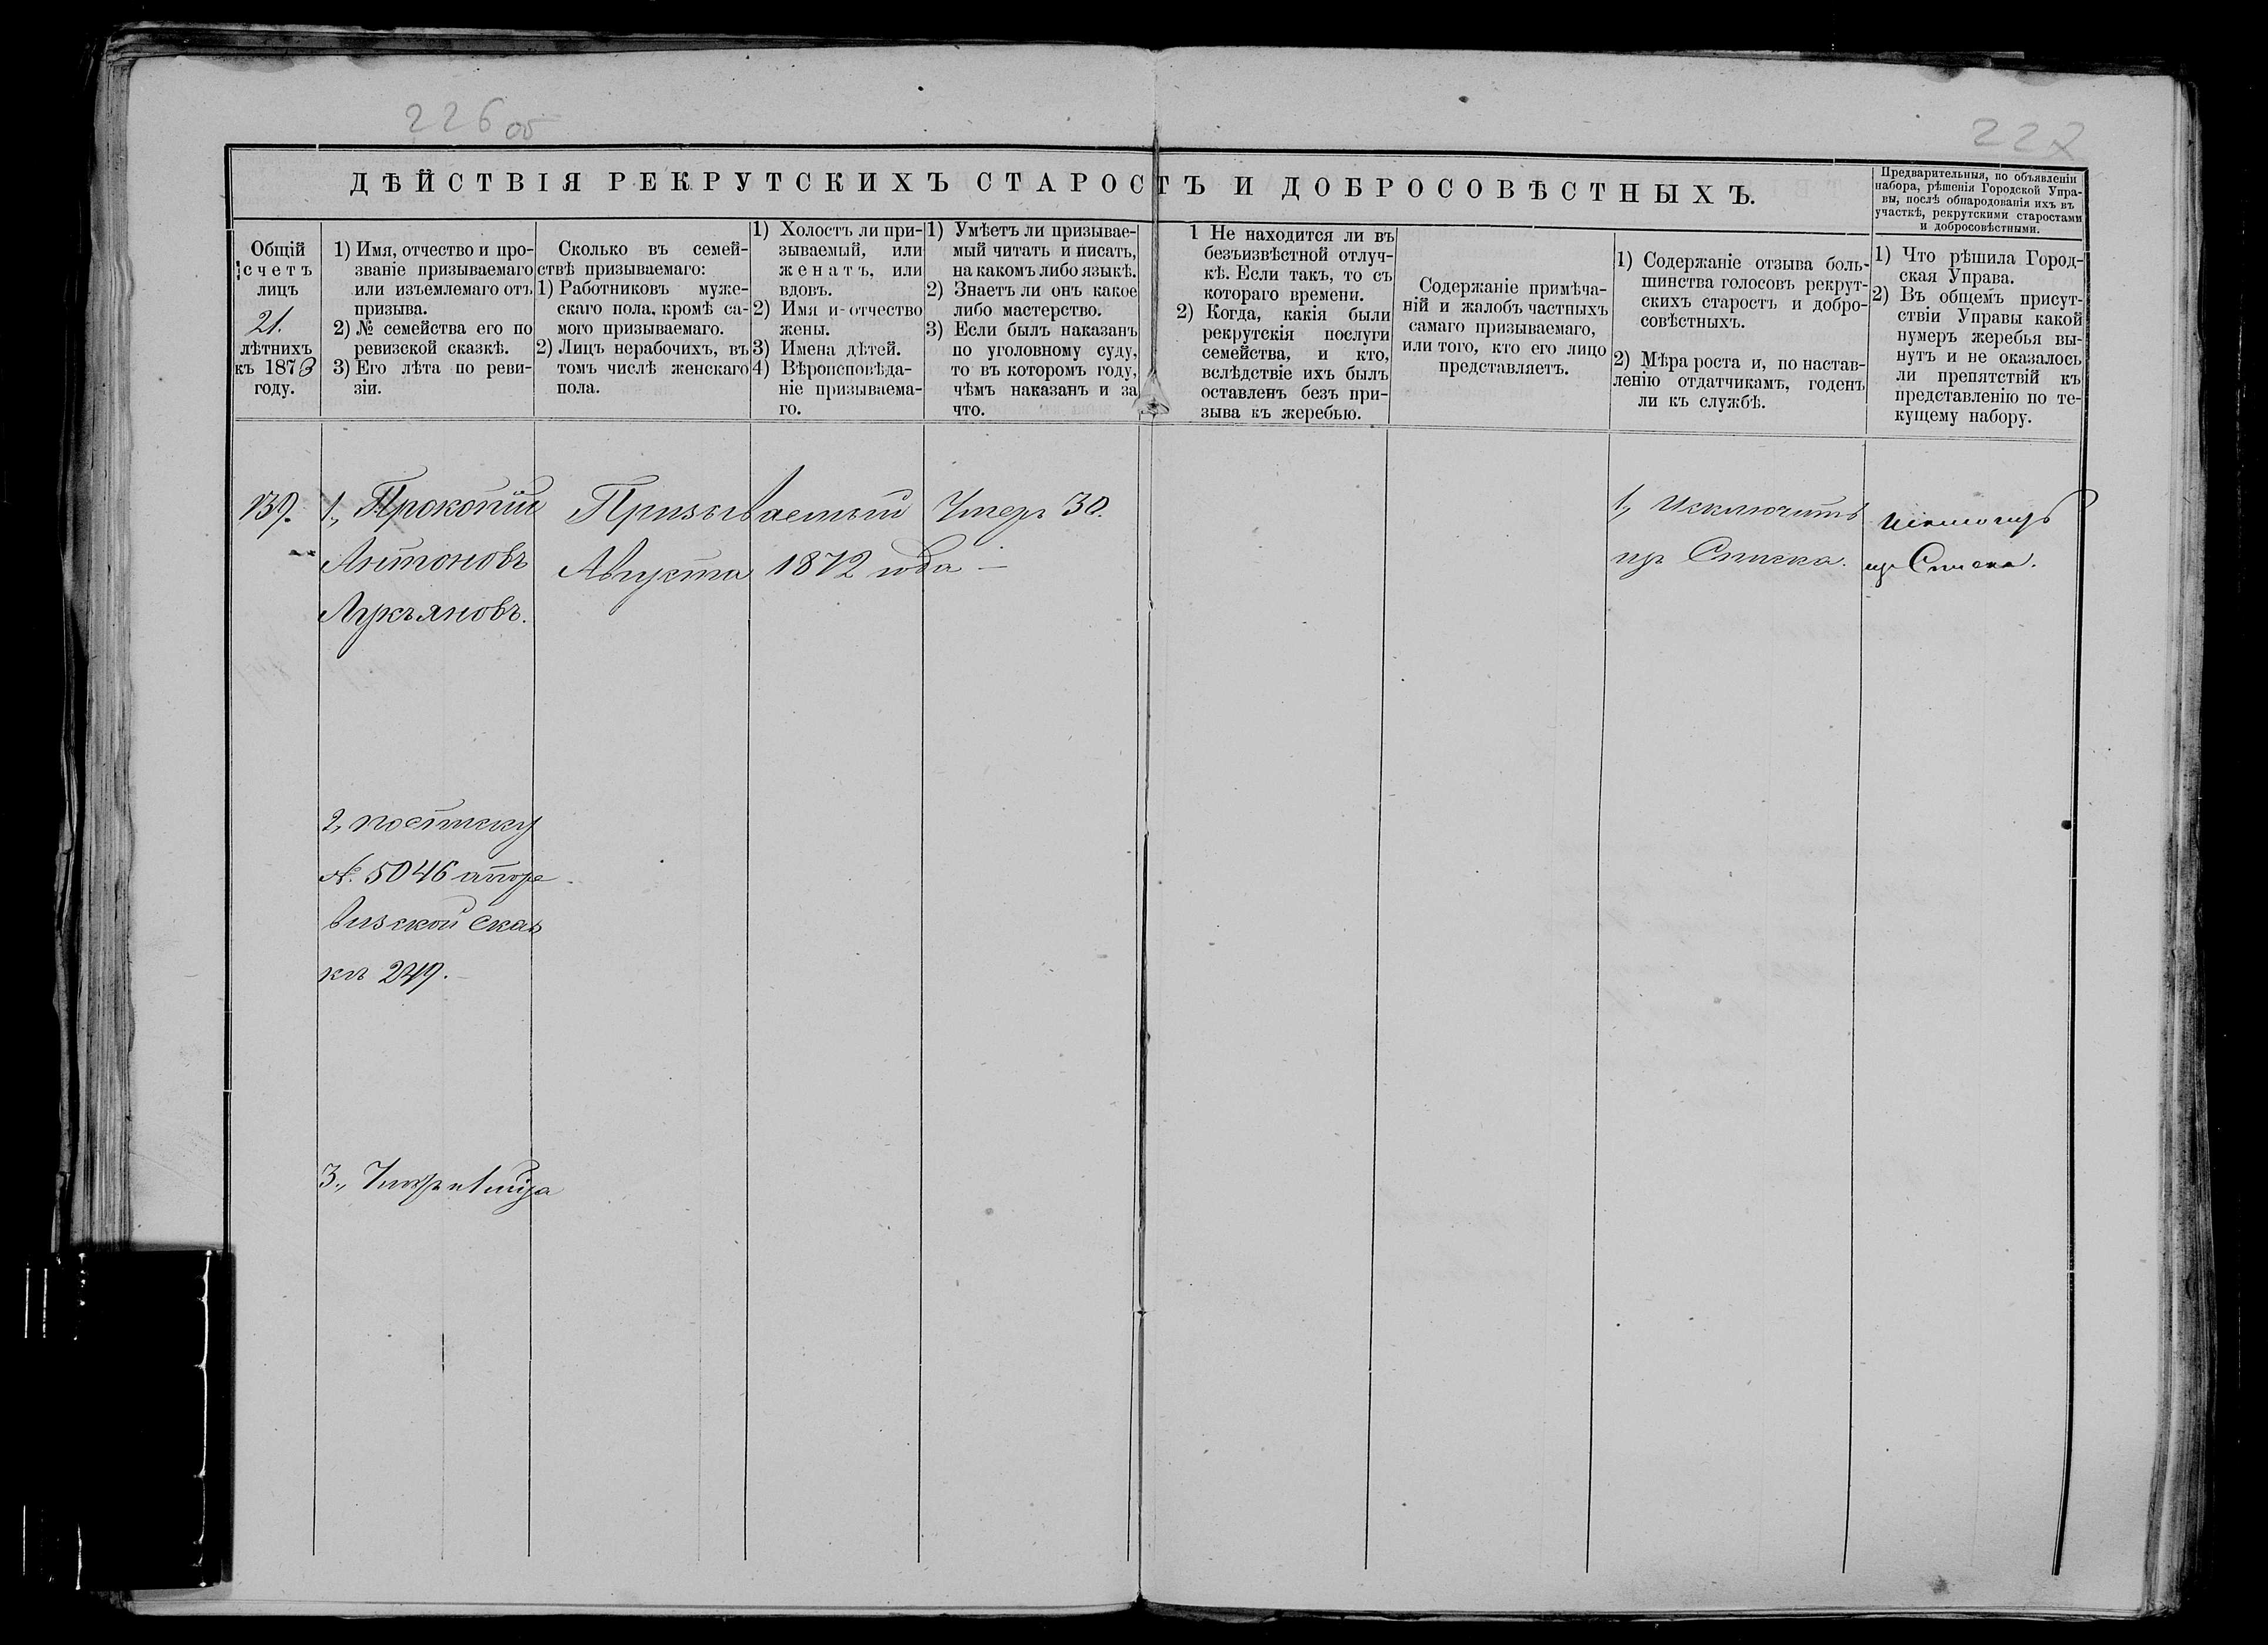 226 об
227
ДѢЙСТВІЯ РЕКРУТСКИХЪ СТАРОСТЪ И ДОБРОСОВѢСТНЫХЪ.
Предварительныя, по объявленіи
набора, рѣшенія Городской Упра-
вы, послѣ обнародованія ихъ въ
участкѣ, рекрутскими старостами
и добросовѣстными.
Общій
счетъ
лицъ
21.
лѣтнихъ
къ 1873
году.
1) Имя, отчество и про-
званіе призываемаго
или изъемлемаго отъ
призыва.
2) № семейства его по
ревизской сказкѣ.
3) Его лѣта по реви-
зіи.
Сколько въ семей-
ствѣ призываемаго:
1) Работниковъ муже-
скаго пола, кромѣ са-
мого призываемаго.
2) Лицъ нерабочихъ, въ
томъ числѣ женскаго
пола.
1) Холостъ ли при-
зываемый, или
женатъ, или
вдовъ.
2) Имя и-отчество
жены.
3) Имена дѣтей.
4) Вѣроисповѣда-
ніе призываема-
го.
1) Умѣетъ ли призывае-
мый читать и писать,
на какомъ либо языкѣ.
2) Знаетъ ли онъ какое
либо мастерство.
3) Если былъ наказанъ
по уголовному суду,
то въ которомъ году,
чѣмъ наказанъ и за
что.
1 Не находится ли въ
безъизвѣстной отлуч-
кѣ. Если такъ, то съ
котораго времени.
2) Когда, какія были
рекрутскія послуги
семейства, и кто,
вслѣдствіе ихъ былъ
оставленъ безъ при-
зыва къ жеребью.
Содержаніе примѣча-
ній и жалобъ частныхъ
самаго призываемаго,
или того, кто его лицо
представляетъ.
1) Содержаніе отзыва боль-
шинства голосовъ рекрут-
скихъ старостъ и добро-
совѣстныхъ.
2) Мѣра роста и, по настав-
ленію отдатчикамъ, годенъ
ли къ службѣ.
1) Что рѣшила Город-
ская Управа.
2) Въ общемъ присут-
ствіи Управы какой
нумеръ жеребья вы-
нутъ и не оказалось
ли препятствій къ
представленію по те-
кущему набору.
139.
1., Прокопій
Антоновъ
Лукъяновъ.
2, по списку
№. 5046 апоре
визской сказ
кѣ 249.
3.,
Призываемый Умеръ 30.
Августа 1872 года
1., Исключить
изъ Списка.
изъ Списка.